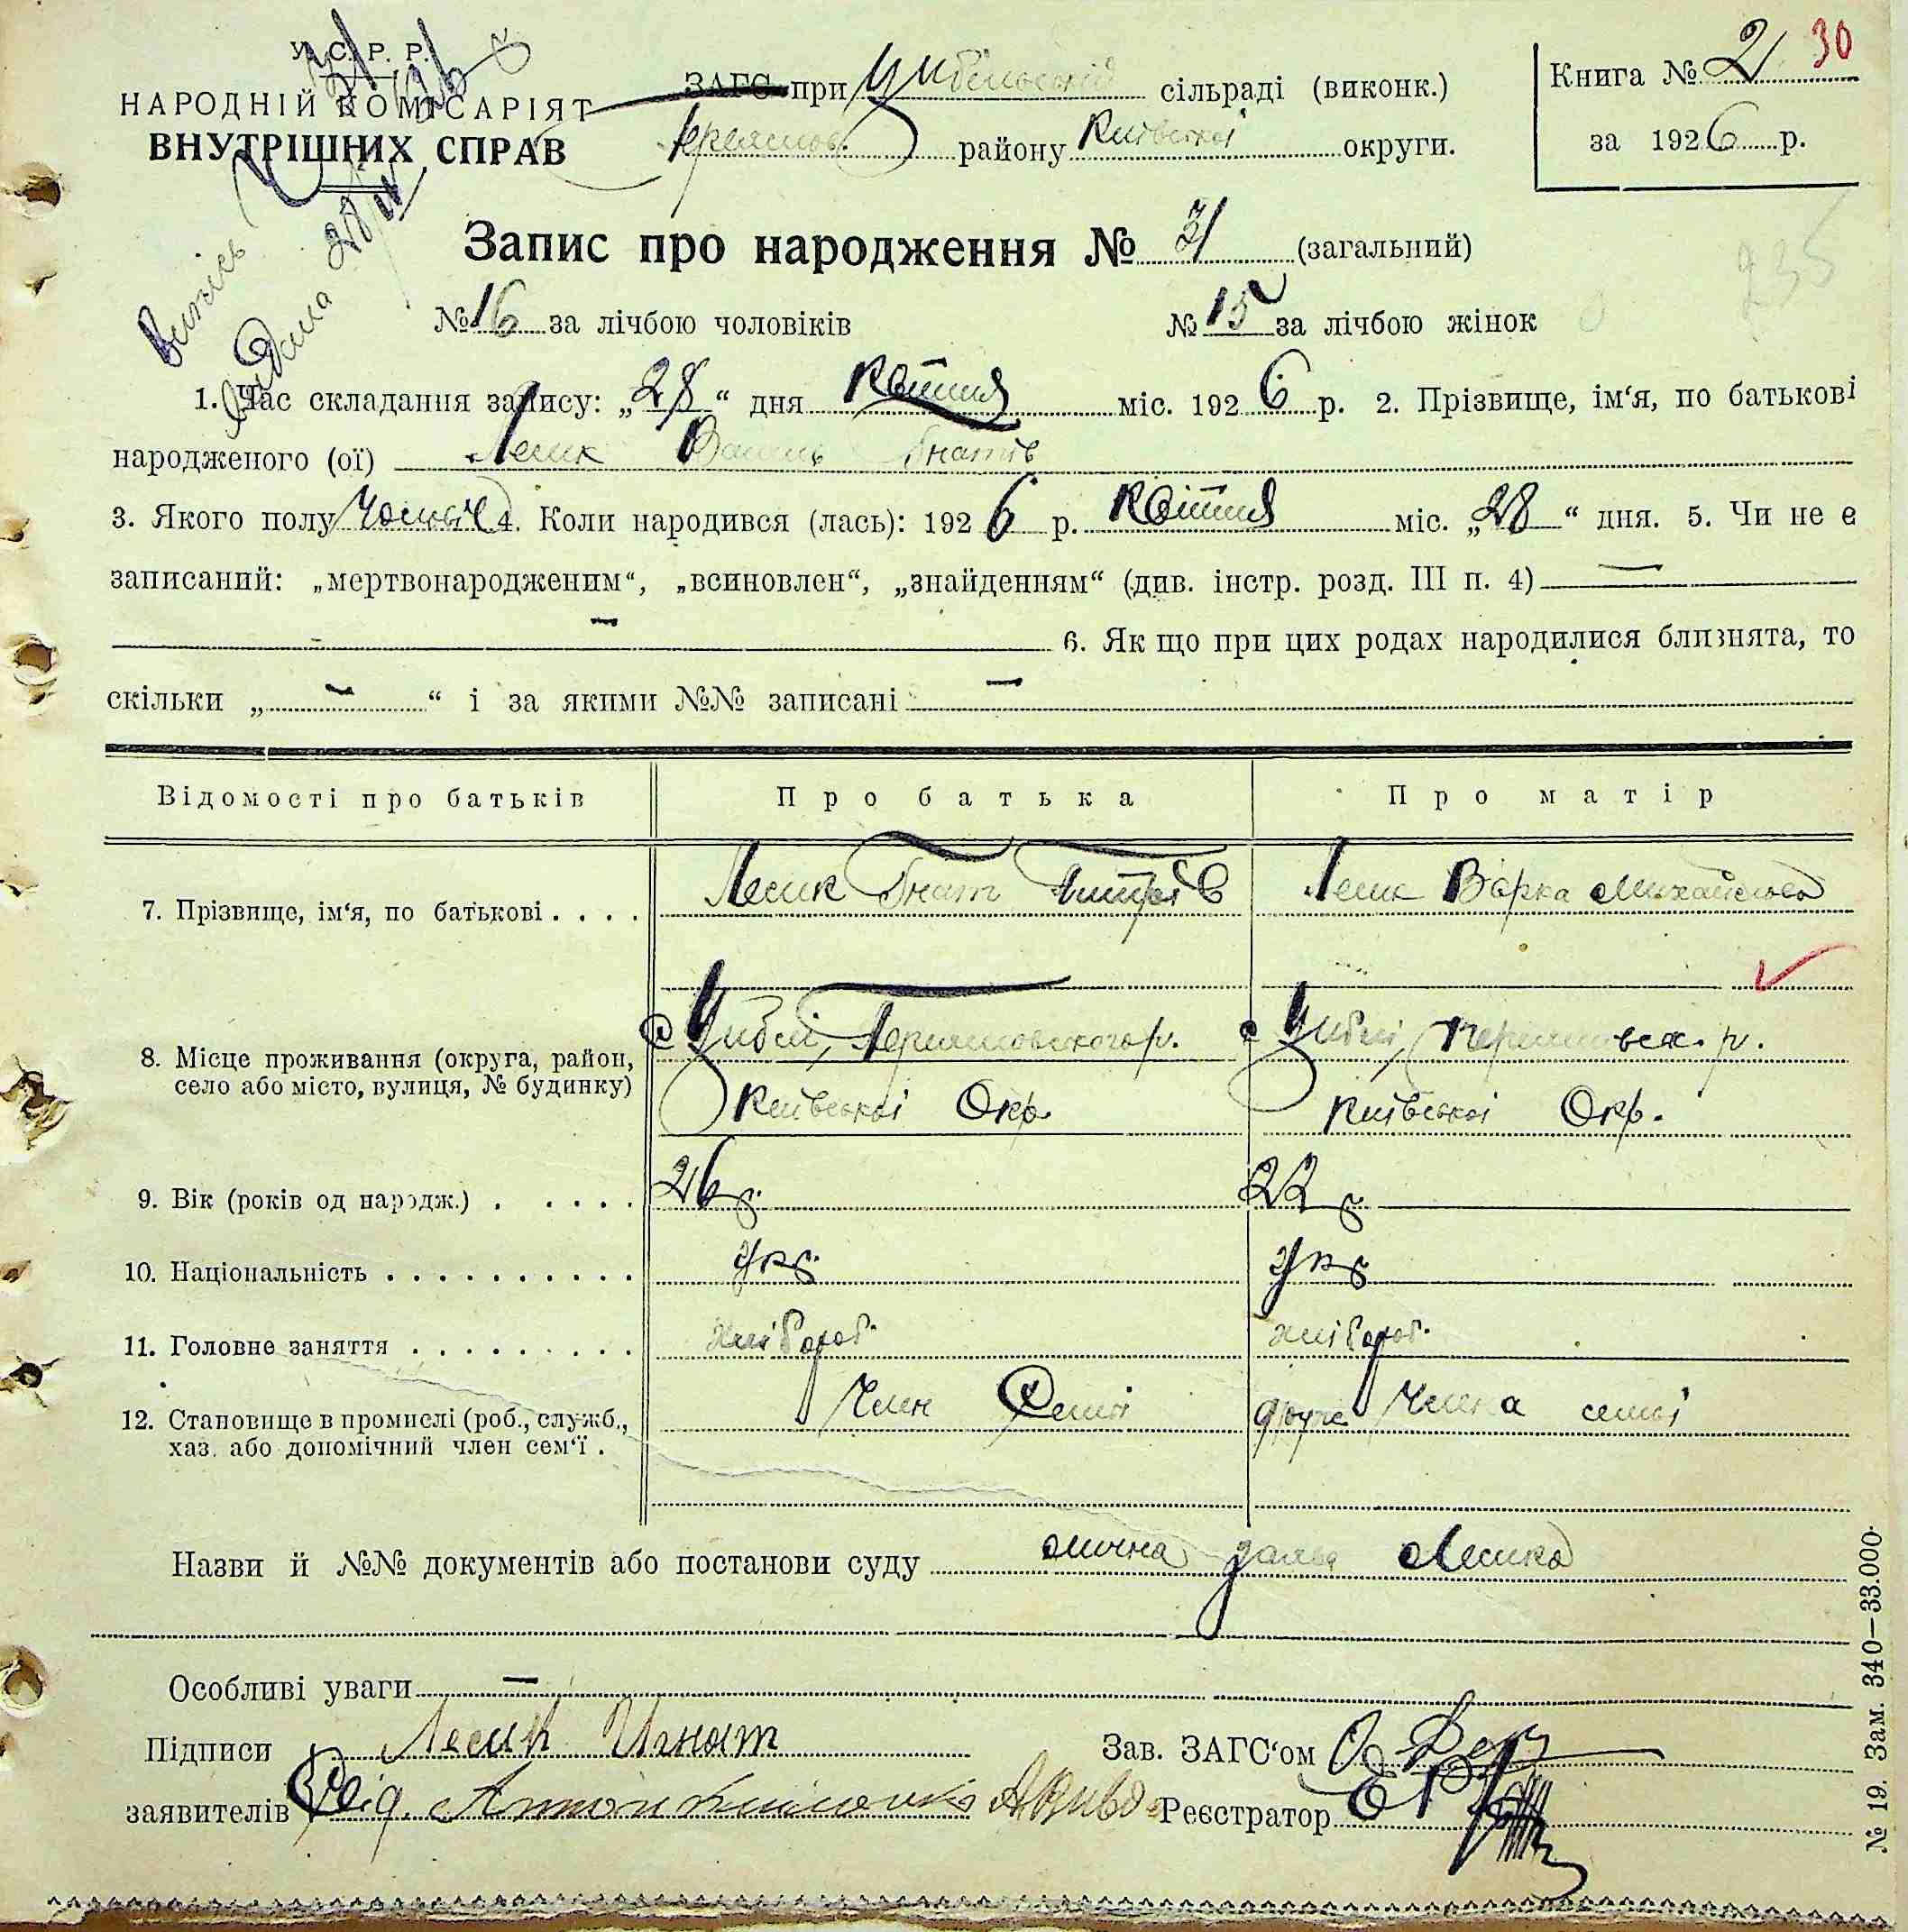 У. С. Р. Р.
НАРОДНІЙ КОМІСАРІЯТ
ВНУТРІШНИХ СПРАВ
Випись
видана 28/IV
ЗАГС при Цибельській сільраді (виконк.)
району Київської округи.
Книга № 2 30
за 1926 р.
235
Запис про народження № 31 (загальний)
№ 16 за лічбою чоловіків № 15 за лічбою жінок
1. Час складання запису: „28“ дня Квітня міс. 1926 р. 2. Прізвище, ім‘я, по батькові
народженого (ої) Лесик Василь Гнатів
3. Якого полу Чоловіч 4. Коли народився (лась): 1926 р. Квітня міс. „28“ дня. 5. Чи не є
записаний: „мертвонародженим“, „всиновлен“, „знайденням“ (див. інстр. розд. III п. 4) —
— 6. Як що при цих родах народилися близнята, то
скільки „ — “ і за якими №№ записані —
Відомості про батьків Про батька Про матір
7. Прізвище, ім‘я, по батькові . . . . Лесик Гнат Дмитрів Лесик Варка Михайлова
8. Місце проживання (округа, район, с Циблі, Переяславського р. с Циблі, Переяславськ. р.
село або місто, вулиця, № будинку) Київської Окр. Київської Окр.
9. Вік (років од народж.) . . . . . 26 р. 22 р
10. Національність . . . . . . . . . . укр. укр
11. Головне заняття . . . . . . . . . хлібороб. хлібороб.
12. Становище в промислі (роб., служб., Член семьї друж члена семьї
хаз. або допомічний член сем‘ї .
Назви й №№ документів або постанови суду заява Лесика
Особливі уваги —
Підписи Лесик Игнат Зав. ЗАГС‘ом
заявителів Свід. Антон Реєстратор
№ 19. Зам. 340—33.000.